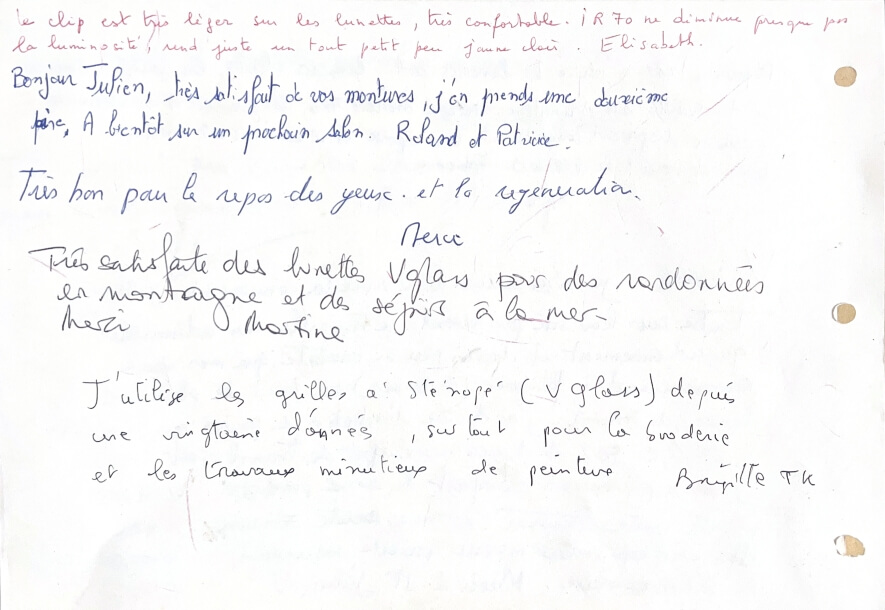 le clip est très léger sur les lunettes, très confortable. iR 70 ne diminue presque pas
la luminosité, rend juste un tout petit peu jaune clair. Elisabeth.
Bonjour Julien, très satisfait de vos montures, j'en prends une deuxième
paire, A bientôt sur un prochain salon. Roland et Patricia.
Très bon pour le repos des yeux et la regénération.
Merci
Très satisfaite des lunettes Vglass pour des randonnées
en montagne et des séjours à la mer
Merci Martine
J'utilise les grilles à Sténopé (V glass) depuis
une vingtaine d'années, surtout pour la broderie
et les travaux minutieux de peinture Brigitte TK